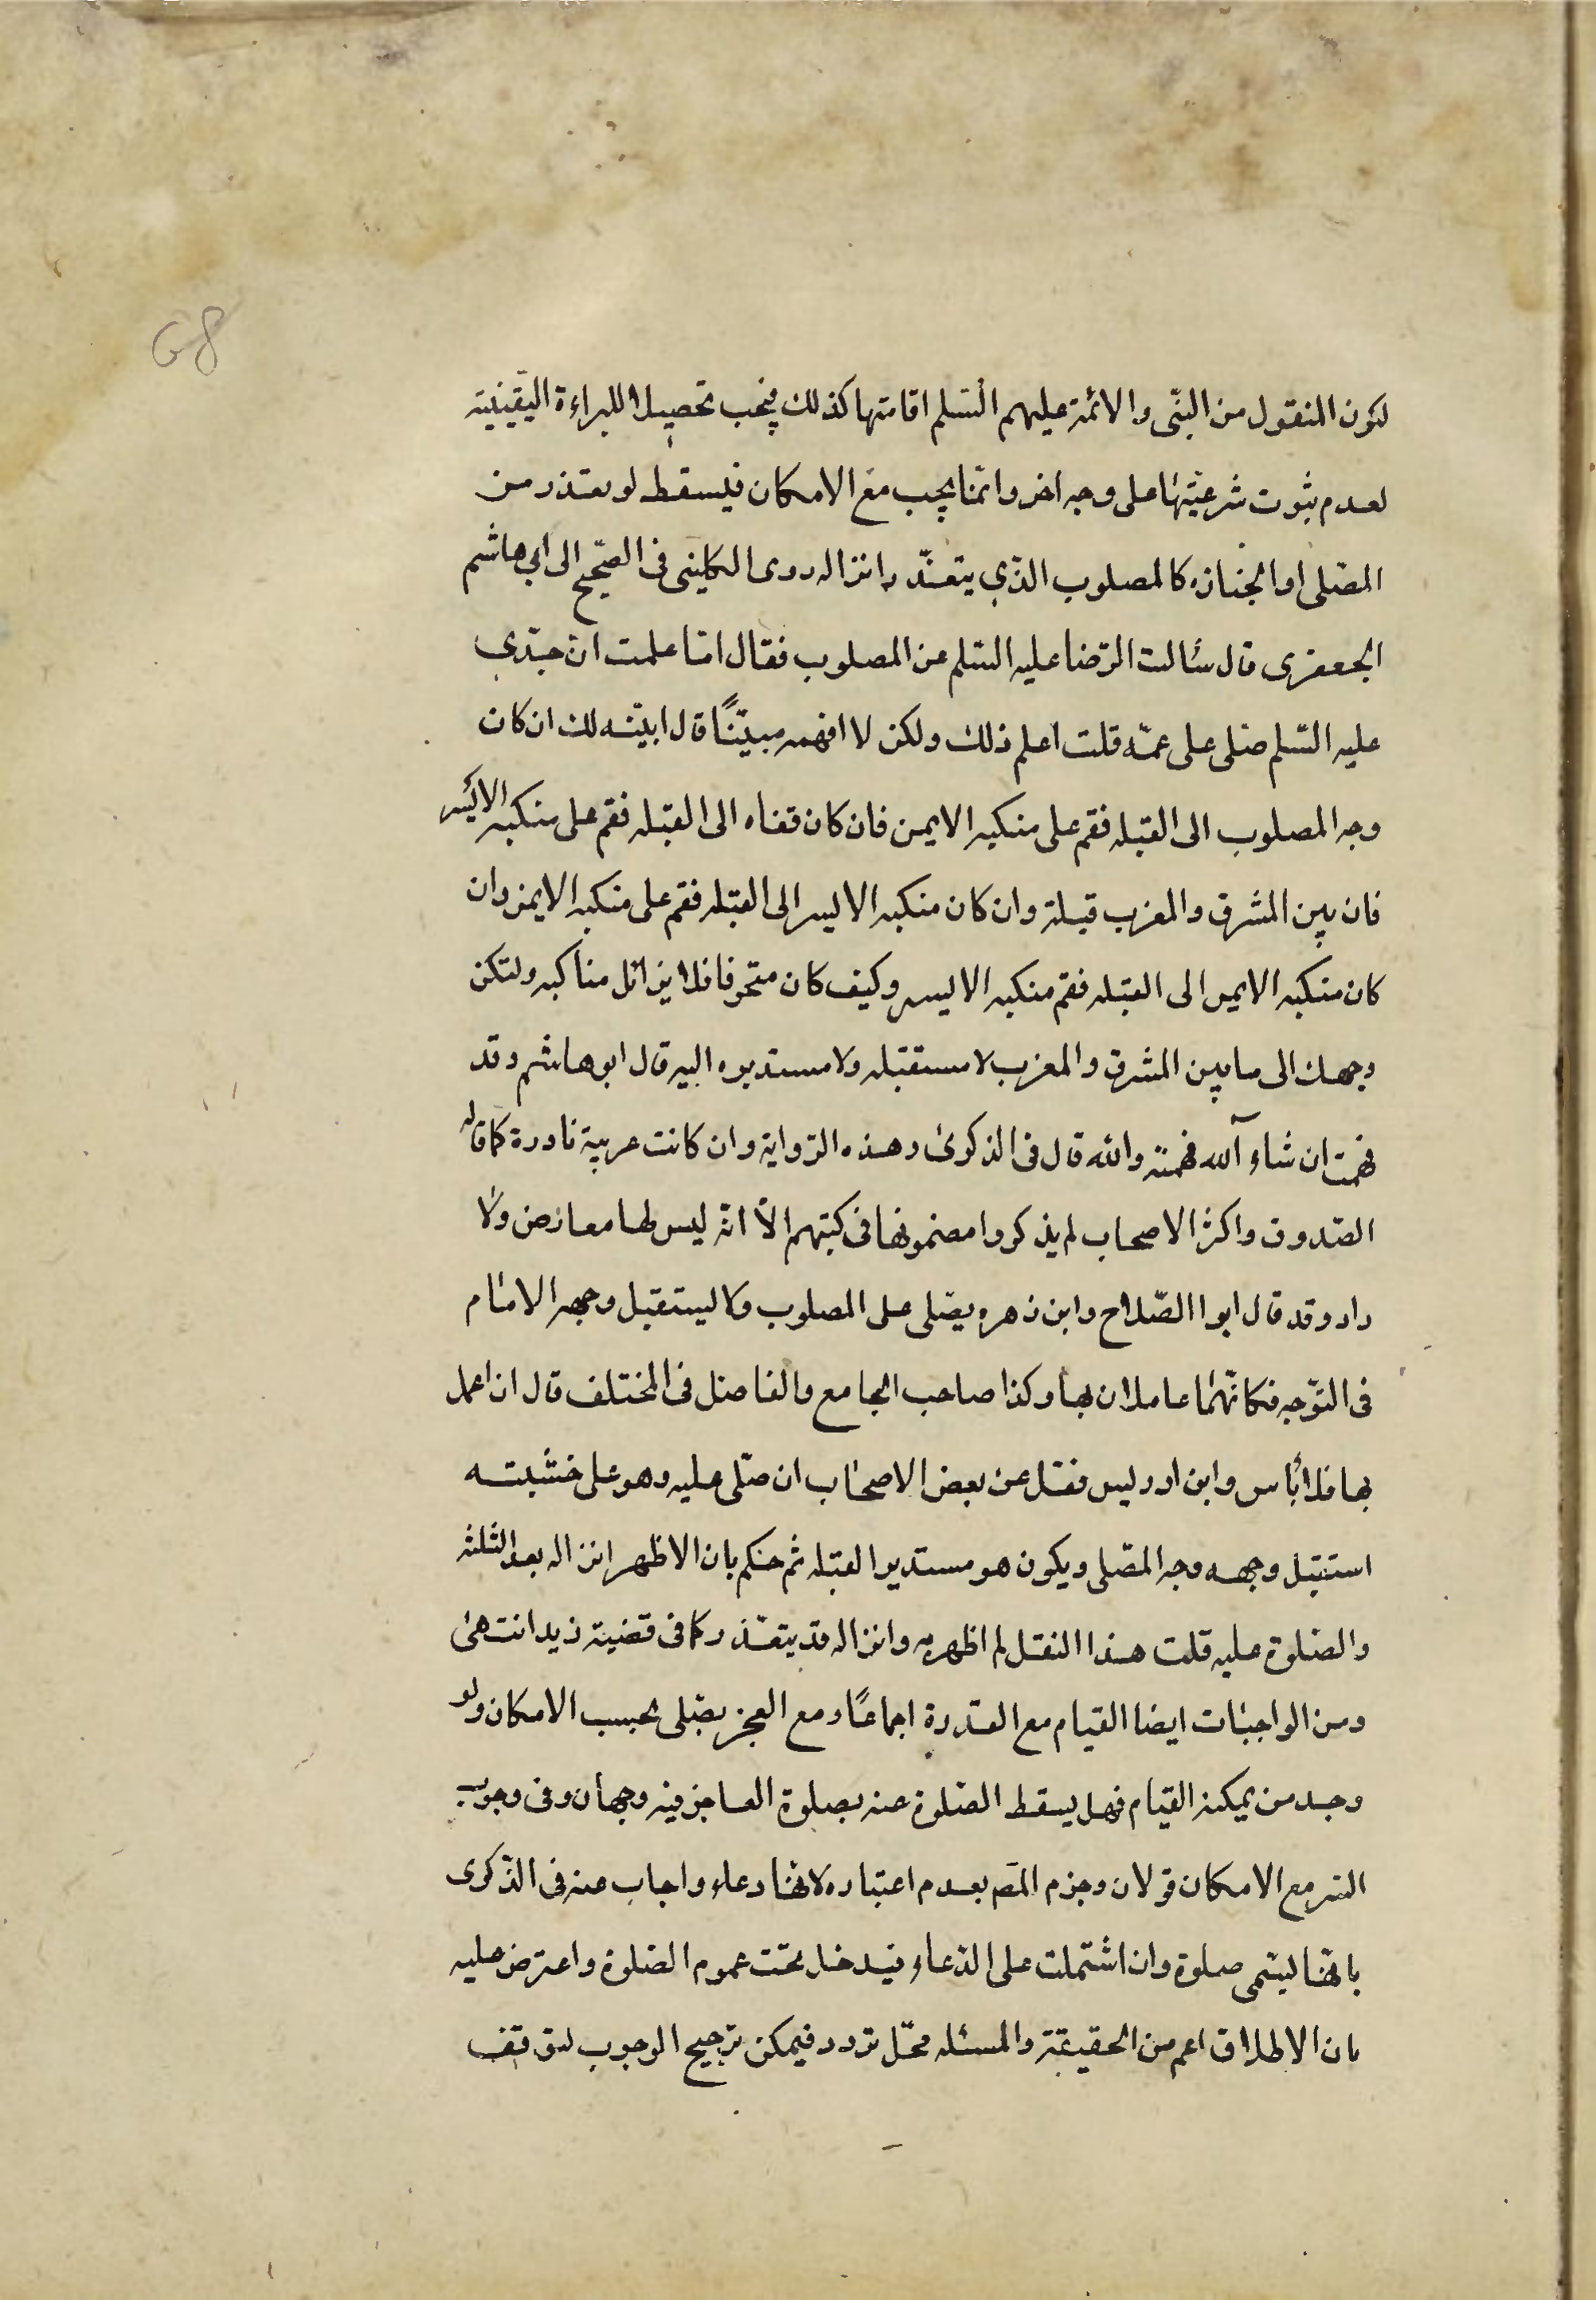 68
لكون المنقول من النبّى والائمة عليهم السّلم اقامتها كذلك فيجب تحصيلا للبراءة اليقينية
لعدم ثبوت شرعيّتها على وجه اخر وانّما يجب مع الامكان فيسقط لو تعتذر من
المصّلى او الجنازه كالمصلوب الذّى يتعذّر انزاله روى الكلينى فى الصّحيح الى ابى هاشم
الجعفرى قال سئالت الرّضا عليه السّلم عن المصلوب فقال امّا علمت انّ جدّى
عليه السّلم صّلى على عمّه قلت اعلم ذلك ولكن لا افهمه مبيّنًا قال ابيّنه لك ان كان
وجه المصلوب الى القبله فقم على منكبه الايمن فان كان قفاه الى القبله فقم على منكبه الايسر
فان بين المشرق والمغرب قبلة وان كان منكبه الايسر الى القبله فقم على منكبه الايمن وان
كان منكبه الايمن الى القبله فقم منكبه الايسر وكيف كان متحرفا فلا يزائل مناكبه ولتكن
وجهك الى ما بين المشرق والمغرب لا مستقبله ولا مستدبره البيه قال ابو هاشم وقد
فهمت ان شاء آلله فهمته والله قال فى الذكرى وهذه الرّواية وان كانت غريبة نادرة كما قاله
الصّدوق واكثر الاصحاب لم يذكروا مضمونها فى كتبهم الاّ انّه ليس لها معارض ولا
راد وقد قال ابوا الصّلاح وابن زهره يصّلى على المصلوب ولا يستقبل وجهه الامام
فى التّوجه فكانّهما عاملان بها وكذا صاحب الجامع والفاصل فى المختلف قال ان اعمل
بها فلا بأس وابن ادريس نقل عن بعض الاصحاب ان صّلى عليه وهو على خشبته
استقبل وجهه وجه المصّلى ويكون هو مستدبر القبله ثم حكم بان الاظهر انزاله بعد الثلثه
والصّلوة عليه قلت هذا النقل لم اظهر به وانزاله قد يتعذّر كما فى قضية زيد انتهى
ومن الواجبات ايضا القيام مع القدرة اجماعًا ومع العجز يصّلى بحسب الامكان ولو
وجد من يمكنه القيام فهل يسقط الصّلوة عنه بصلوة العاجز فيه وجهان وفى وجوب
الستر مع الامكان قولان وجزم المص بعدم اعتباره لانّها دعاء واجاب عنه فى الذّكرى
بانّها ليسّمى صلوة وان اشتملت على الدّعاء فيدخل تحت عموم الصّلوة واعترض عليه
بان الاطلاق اعم من الحقيقة والمسئله محّل تردد فيمكن ترجيح الوجوب لتوقف